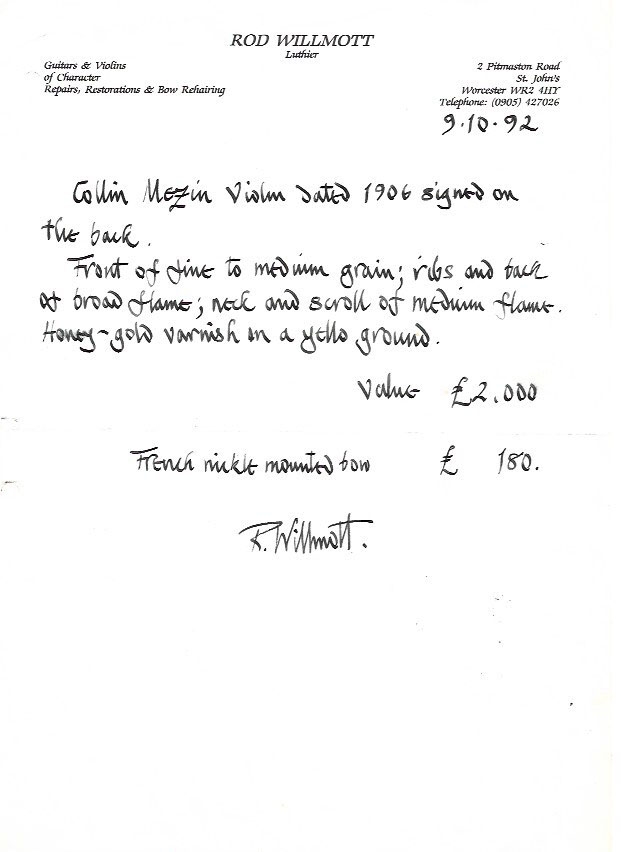 ROD WILLMOTT
Luthier
Guitars & Violins
of Character
Repairs, Restorations & Bow Rehairing
2 Pitmaston Road
St. John's
Worcester WR2 4HY
Telephone: (0905) 427026
9·10·92
Collin Mezin Violin dated 1906 signed on
the back.
Front of fine to medium grain; ribs and back
of broad flame; neck and scroll of medium flame.
Honey-gold varnish on a yello ground.
Value £2.000
French nickle mounted bow £ 180.
R. Willmott.